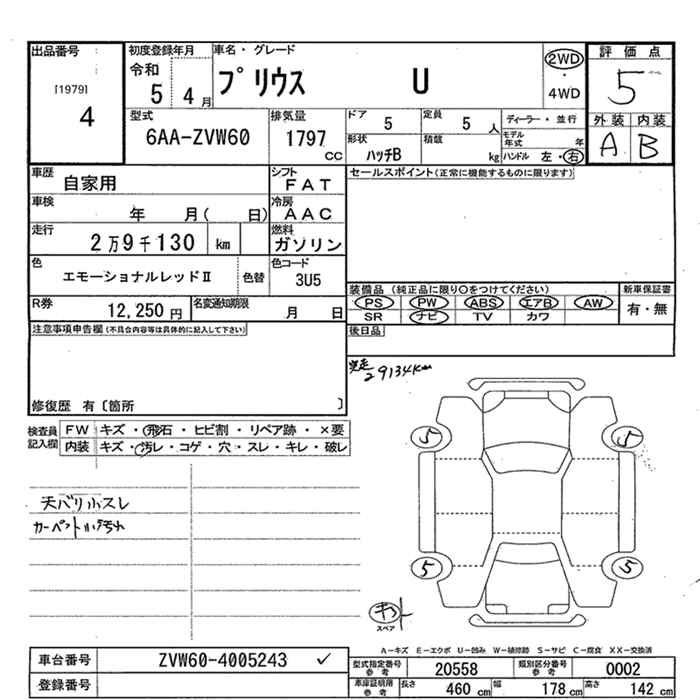 出品番号 初度登録年月 車名・グレード 評価点
[1979] 4 令和 5 4月 プリウス U 2WD・4WD 5
型式 排気量 ドア 5 定員 5人 ディーラー・並行 外装 内装
6AA-ZVW60 1797 cc 形状 ハッチB 積載 kg モデル年式 年 A B
ハンドル 左・右
車歴 自家用 シフト FAT セールスポイント(正常に機能するものに限ります)
車検 年 月( 日) 冷房 AAC
走行 2万9千130 km 燃料 ガソリン
色 エモーショナルレッドⅡ 色替 色コード 3U5
装備品 (純正品に限り○をつけてください) 新車保証書
R券 12,250円 名変通知期限 月 日 PS PW ABS エアB AW 有・無
SR ナビ TV カワ
注意事項申告欄(不具合内容等は具体的に記入して下さい) 後日品
実走 29134Km
修復歴 有〔箇所 〕
検査員 FW キズ・飛石・ヒビ割・リペア跡・×要
記入欄 内装 キズ・汚レ・コゲ・穴・スレ・キレ・破レ
5 5
天バリ小スレ
カーペット小汚れ
5 5
キ
スペア
A-キズ E-エクボ U-凹み W-補修跡 S-サビ C-腐食 XX-交換済
車台番号 ZVW60-4005243 ✓ 型式指定番号 参考 20558 類別区分番号 参考 0002
登録番号 車庫証明用 参考 長さ 460 cm 幅 178 cm 高さ 142 cm